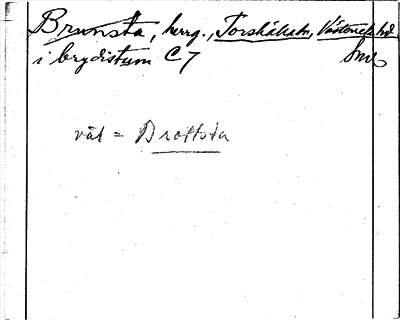 Brunsta, herrg., Torshälla ln, Västerrek. hd
i brydistum C 7 Sml.
väl = Brottsta